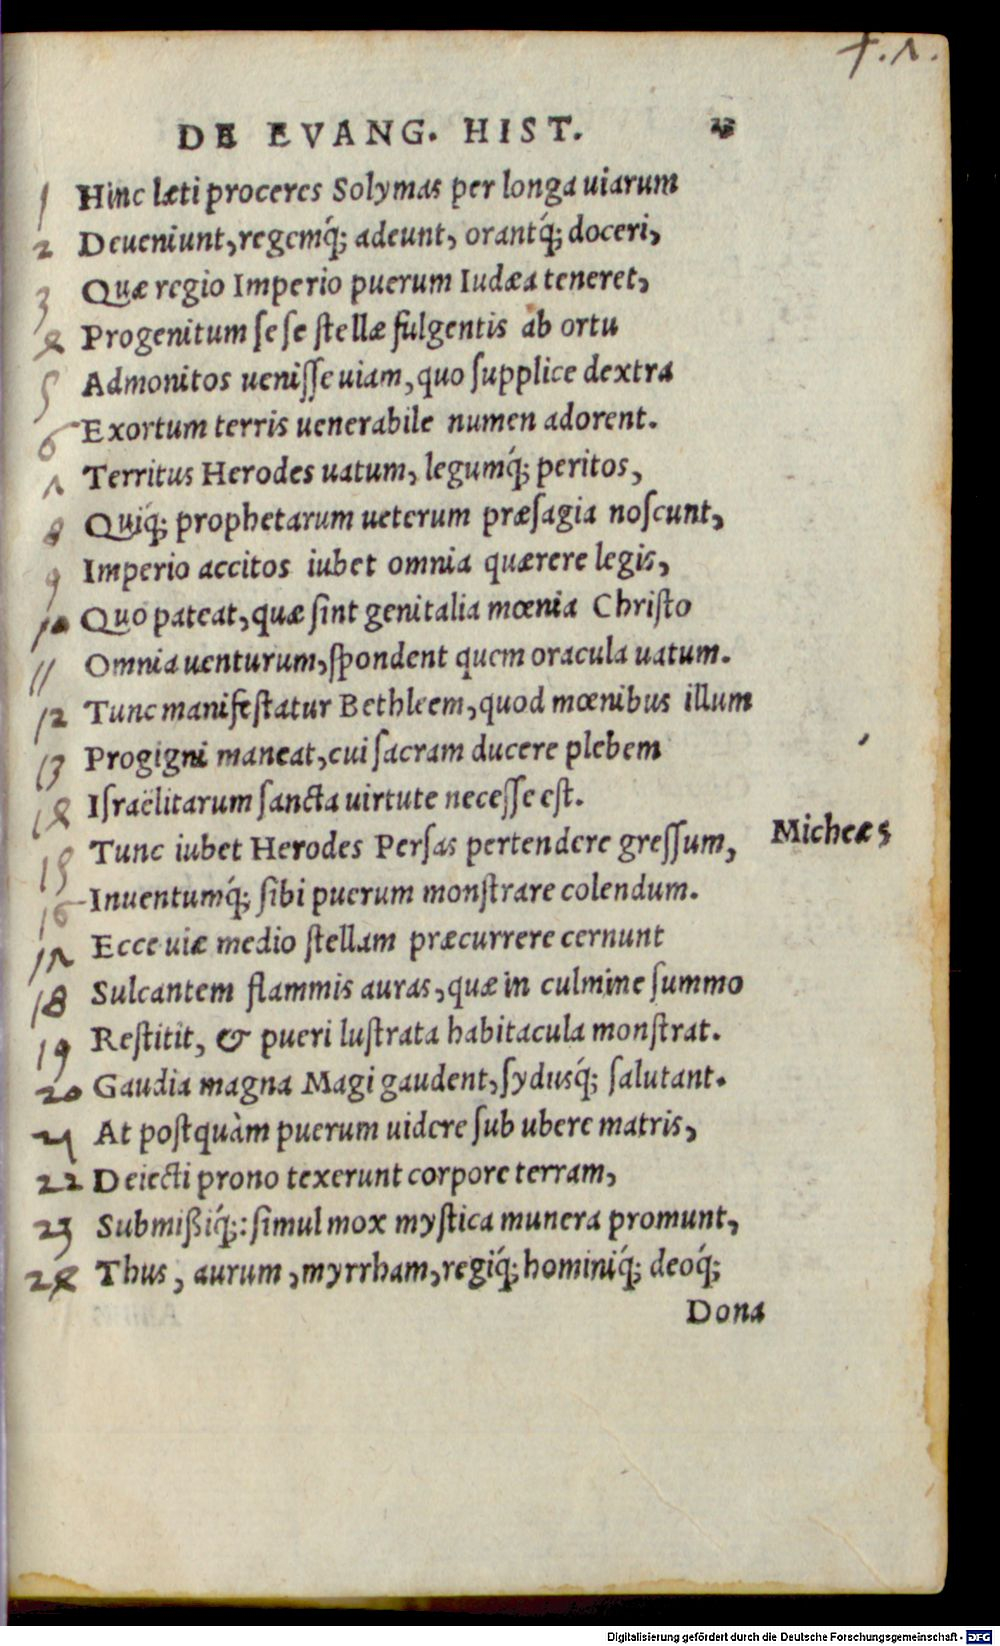 DE EVANG. HIST.
1 Hinc læti proceres Solymas per longa uiarum
2 Deueniunt, regemq́; adeunt, orantq́; doceri,
3 Quæ regio Imperio puerum Iudæa teneret,
4 Progenitum ſeſe ſtellæ fulgentis ab ortu
5 Admonitos ueniſſe uiam, quo ſupplice dextra
6 Exortum terris uenerabile numen adorent.
7 Territus Herodes uatum, legumq́; peritos,
8 Quiq́; prophetarum ueterum præſagia noſcunt,
9 Imperio accitos iubet omnia quærere legis,
10 Quo pateat, quæ ſint genitalia mœnia Chriſto
11 Omnia uenturum, ſpondent quem oracula uatum.
12 Tunc manifeſtatur Bethleem, quod mœnibus illum
13 Progigni maneat, cui ſacram ducere plebem
14 Iſraëlitarum ſancta uirtute neceſſe eſt.
15 Tunc iubet Herodes Perſas pertendere greſſum,
Micheæ 5
16 Inuentumq́; ſibi puerum monſtrare colendum.
17 Ecce uiæ medio ſtellam præcurrere cernunt
18 Sulcantem flammis auras, quæ in culmine ſummo
19 Reſtitit, & pueri luſtrata habitacula monſtrat.
20 Gaudia magna Magi gaudent, ſydusq́; ſalutant.
21 At poſtquàm puerum uidere ſub ubere matris,
22 Deiecti prono texerunt corpore terram,
23 Submißiq́;: ſimul mox myſtica munera promunt,
24 Thus, aurum, myrrham, regiq́; hominiq́; deoq́;
Dona
Digitalisierung gefördert durch die Deutsche Forschungsgemeinschaft - DFG